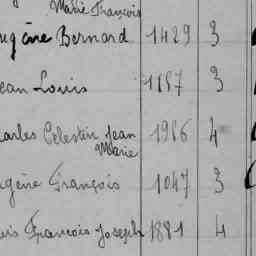 Marie François
ugène Bernard 1429 3
ean Louis 1187 3
arles Celestin Jean 1986 4
Marie
gène François 1047 3
uis François Joseph 1881 4